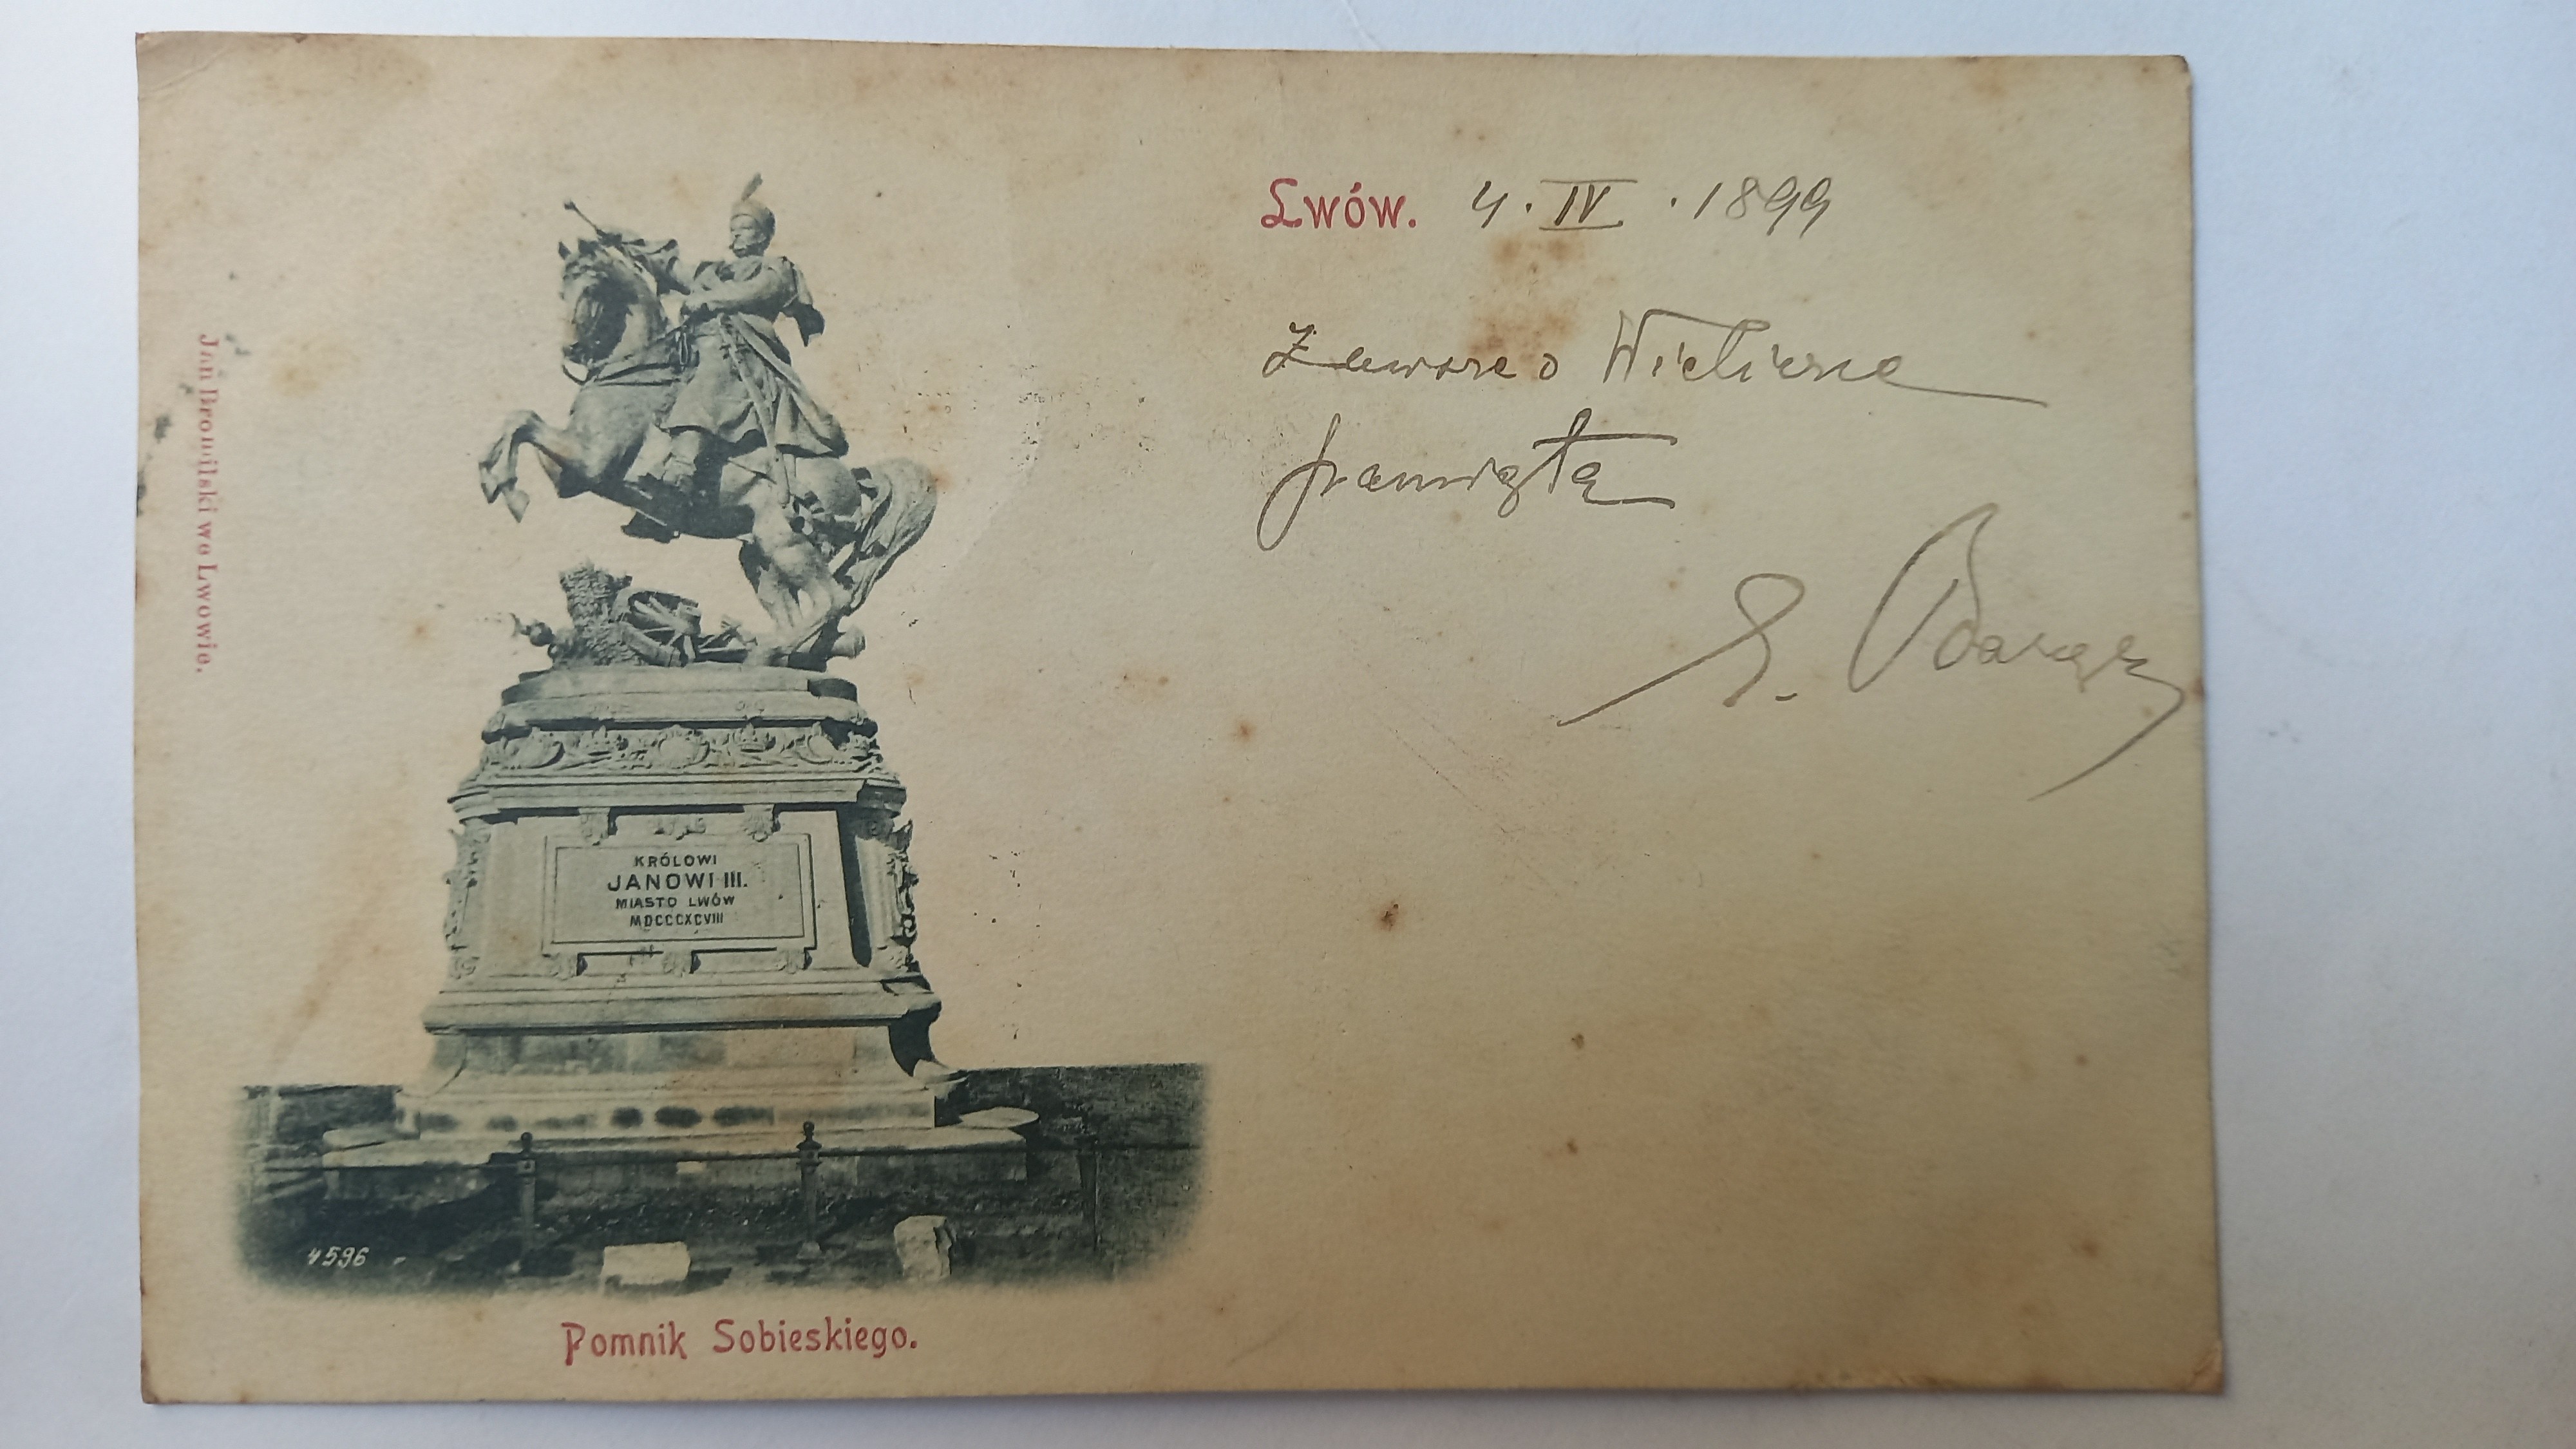 Lwów. 4. IV. 1899
Zawsze o
pamięta
Jan Bromilski we Lwowie.
KRÓLOWI
JANOWI III.
MIASTO LWÓW
MDCCCXCVIII
4596
Pomnik Sobieskiego.